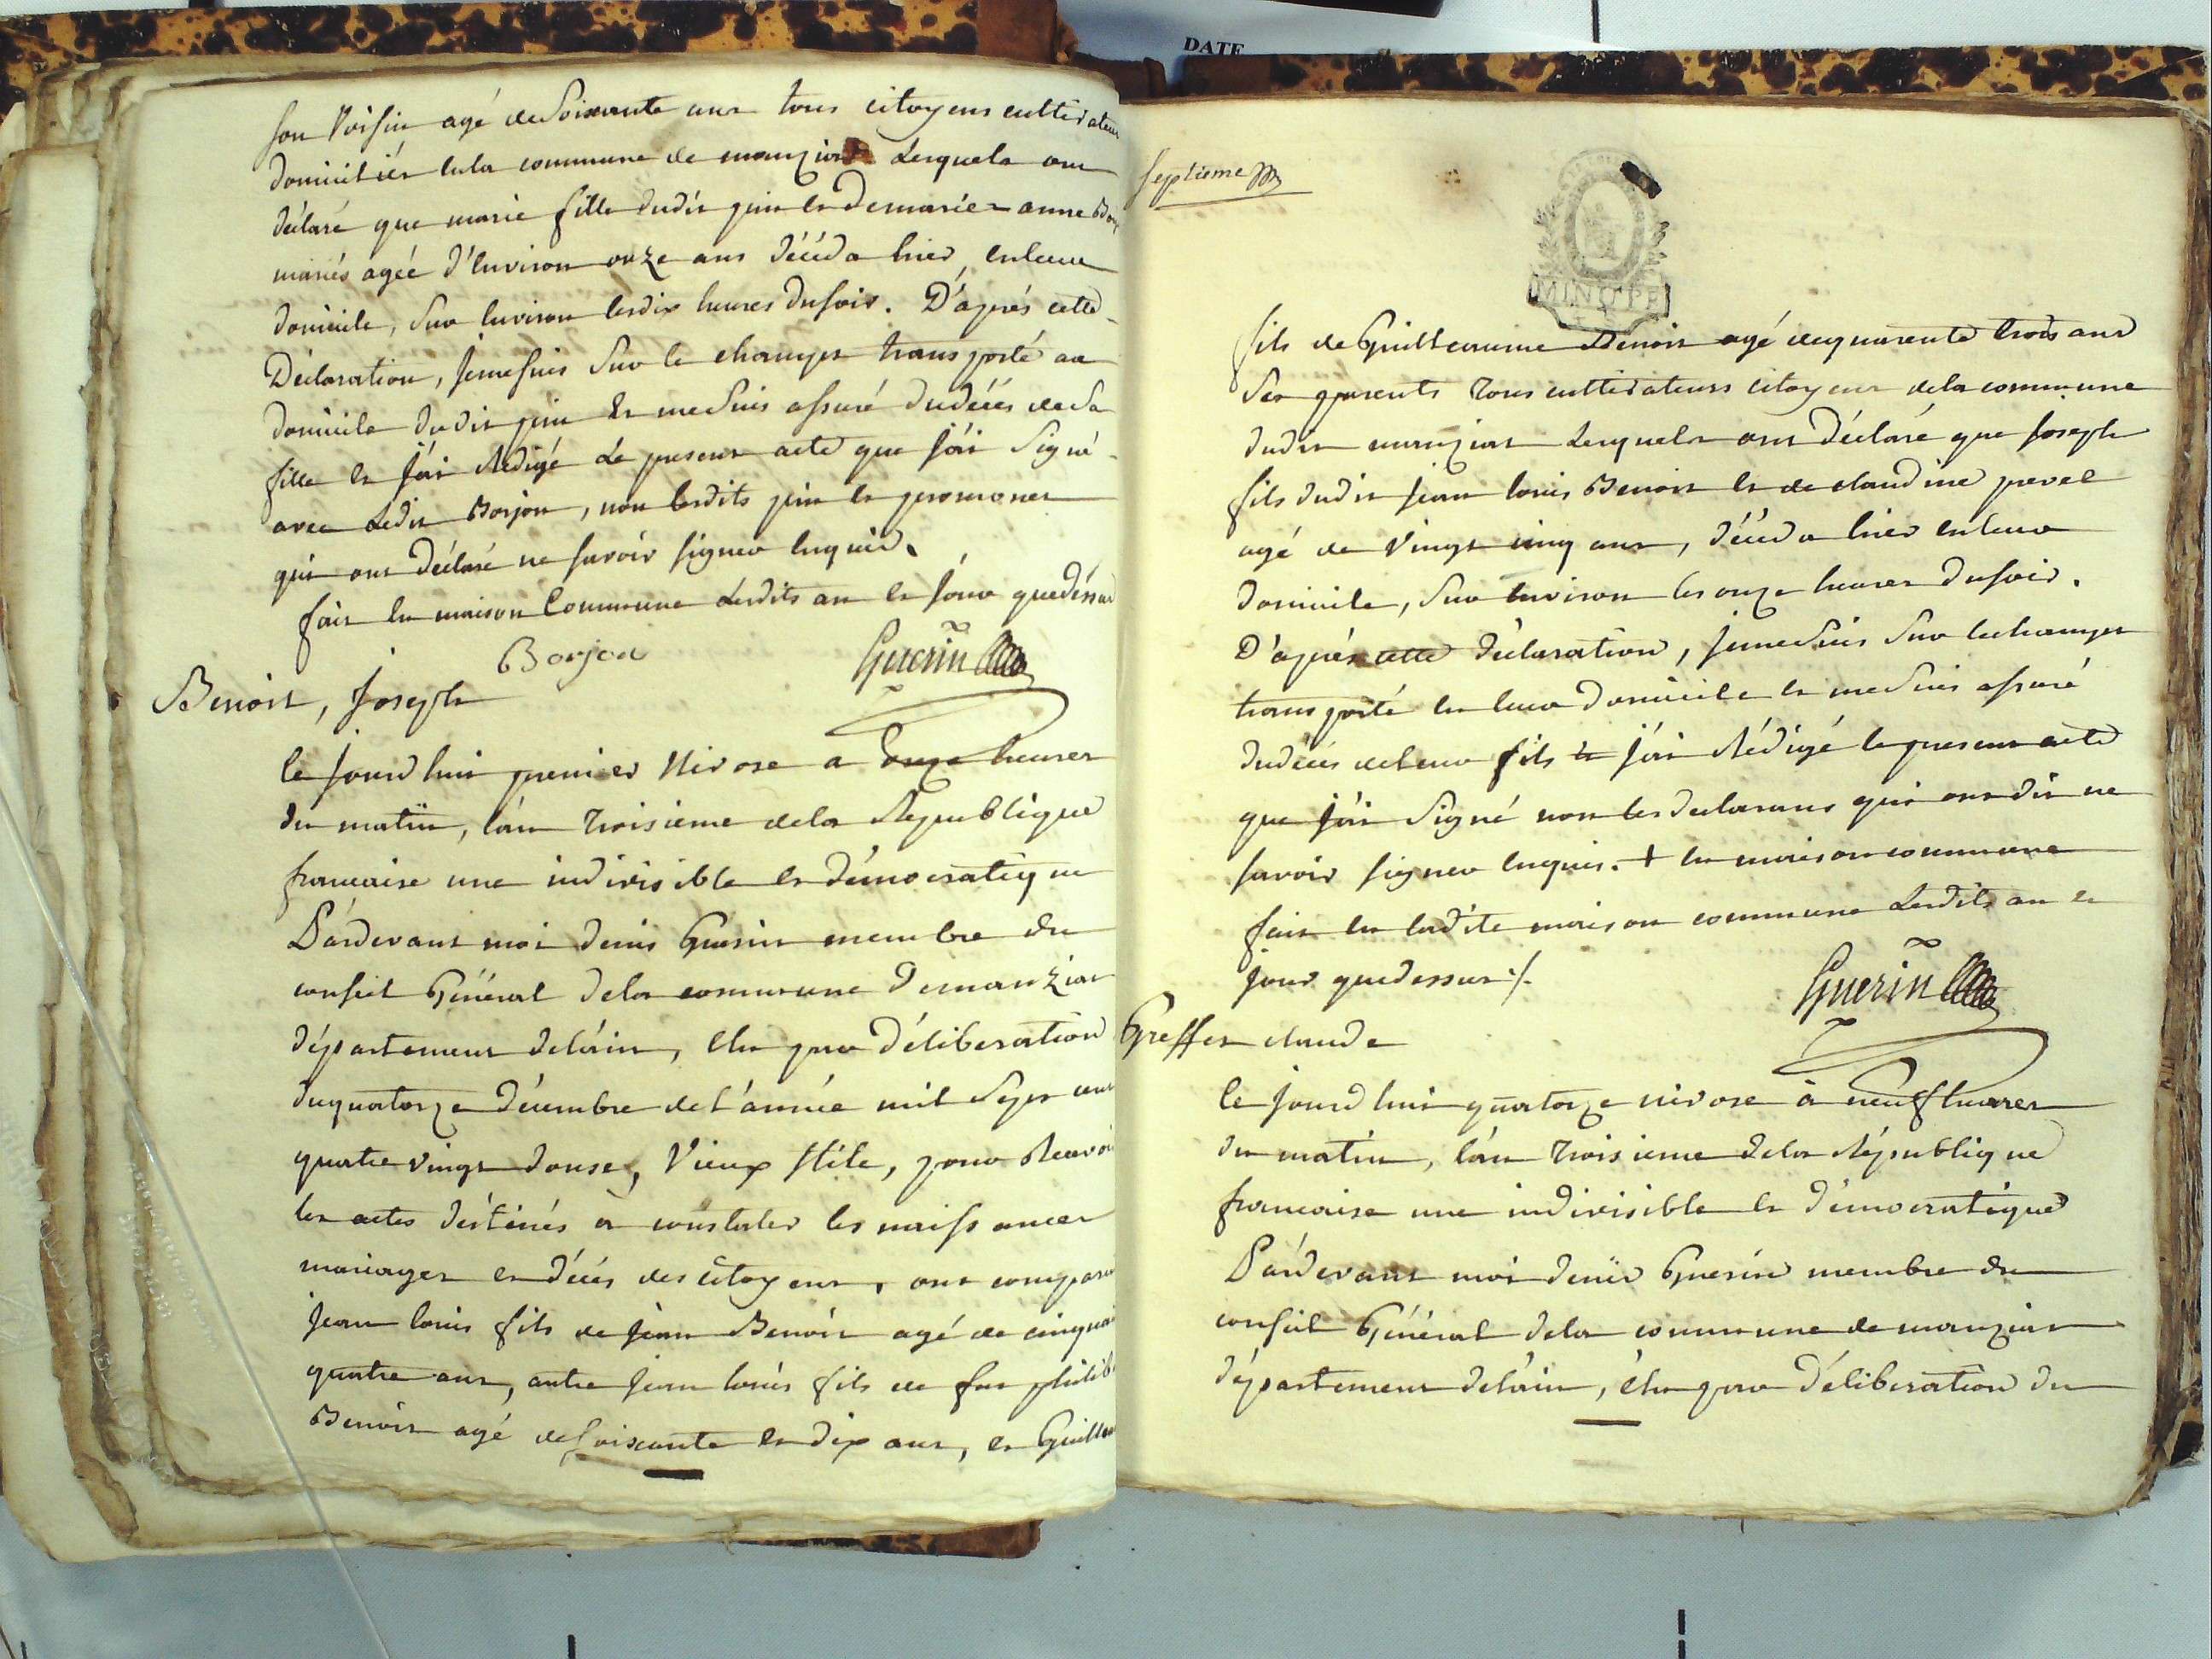 DATE
son Voisin agé de Soixante ans tous citoyens cultivateurs
domiciliés en la commune de manziat Lesquels ont
déclaré que marie fille dudit pin et de marie-anne
mariés agée d'Environ onze ans décéda hier, en leur
domicile, Sur Environ les dix heures du soir. D'après cette
Déclaration, je me suis Sur le champ transporté au
domicile dudit pin Et me suis assuré du décés de sa
fille et j'ai Rédigé Le present acte que j'ai Signé
avec Ledit Borjon, non lesdits pin et
qui ont déclaré ne savoir signer Enquis.
fait En maison Commune Lesdits an et jour que dessus
Borjon
Guerin
Benoit, Joseph
le jourd'hui premier Nivose a onze heures
du matin, l'an troisieme de la Republique
francaise une indivisible et démocratique
Pardevant moi denis Guerin membre du
conseil Général de la commune de manziat
département de l'ain, Elu par Déliberation
du quatorze décembre de l'année mil Sept cent
quatre vingt douse, Vieux Stile, pour Recevoir
les actes destinés à constater les naissances
mariages et décés des citoyens, ont comparu
jean louis fils de jean Benoit agé de cinquante
quatre ans, autre jean louis fils de feu philibert
Benoit agé de soixante et dix ans, et Guillaume
septieme
MINUTE
fils de Guilleaume Benoit agé de quarente trois ans
Ses parents tous cultivateurs citoyens de la commune
dudit manziat Lesquels ont déclaré que joseph
fils dudit jean louis Benoit et de claudine prevel
agé de Vingt cinq ans, décéda hier en leur
domicile, Sur Environ les onze heures du soir.
D'après cette déclaration, je me suis Sur le champ
transporté En leur domicile et me suis assuré
du décés de leur fils et j'ai Rédigé le present acte
que j'ai Signé non les declarans qui ont dit ne
savoir signer Enquis. + En maison commune
fait En ladite maison commune Lesdits an et
jour que dessus ./.
Guerin
Greffet claude
le jourd'hui quatorze nivose à neuf heures
du matin, l'an troisieme de la République
francaise une indivisible et démocratique
Pardevant moi denis Guerin membre du
conseil Général de la commune de manziat
département de l'ain, élu par Déliberation du